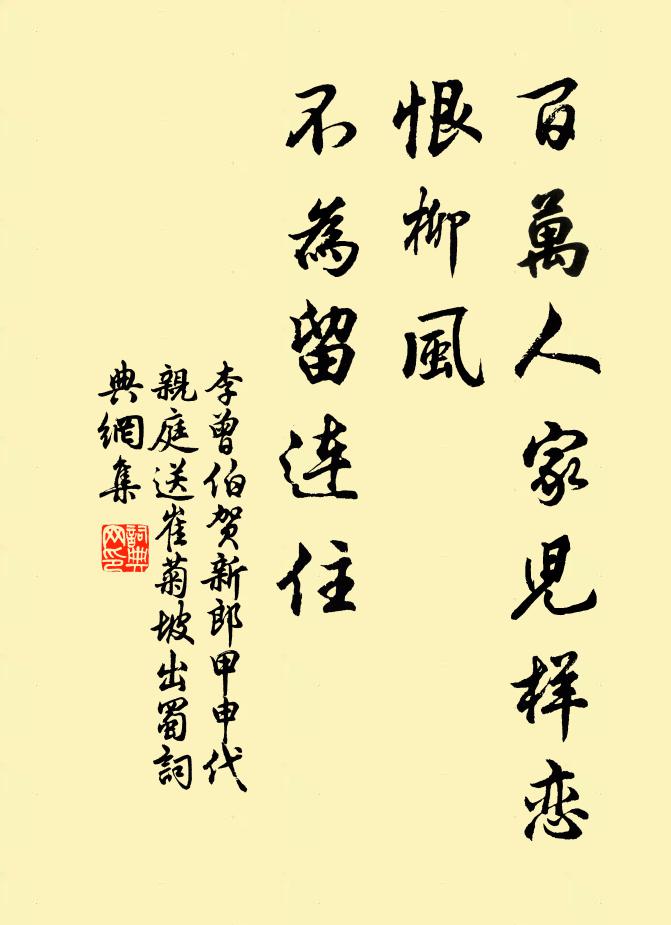 百萬人家児样恋
恨柳風
不為留連住
李曾伯賀新郎甲申代
親庭送崔菊坡出蜀詞
典網集
詞典
网印